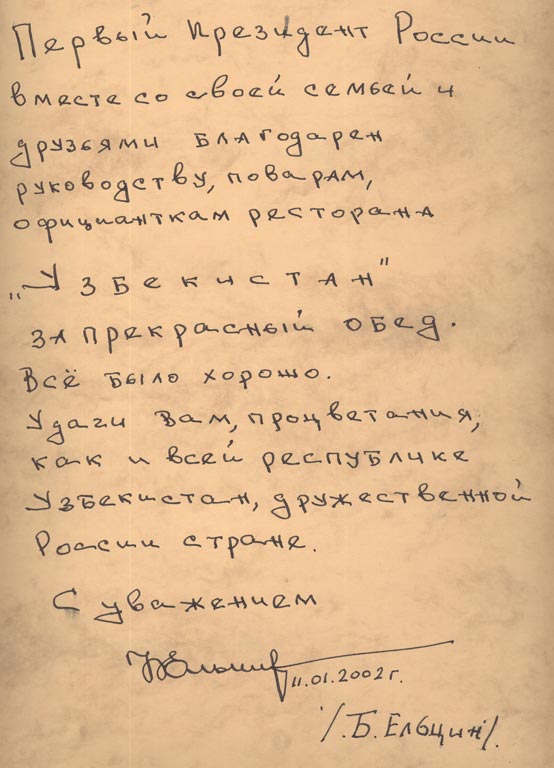 Первый Президент России
вместе со своей семьей и
друзьями благодарен
руководству, поварам,
официанткам ресторана
„Узбекистан"
за прекрасный обед.
Всё было хорошо.
Удачи Вам, процветания,
как и всей республике
Узбекистан, дружественной
России стране.
С уважением
11.01.2002 г.
/.Б. Ельцин/.